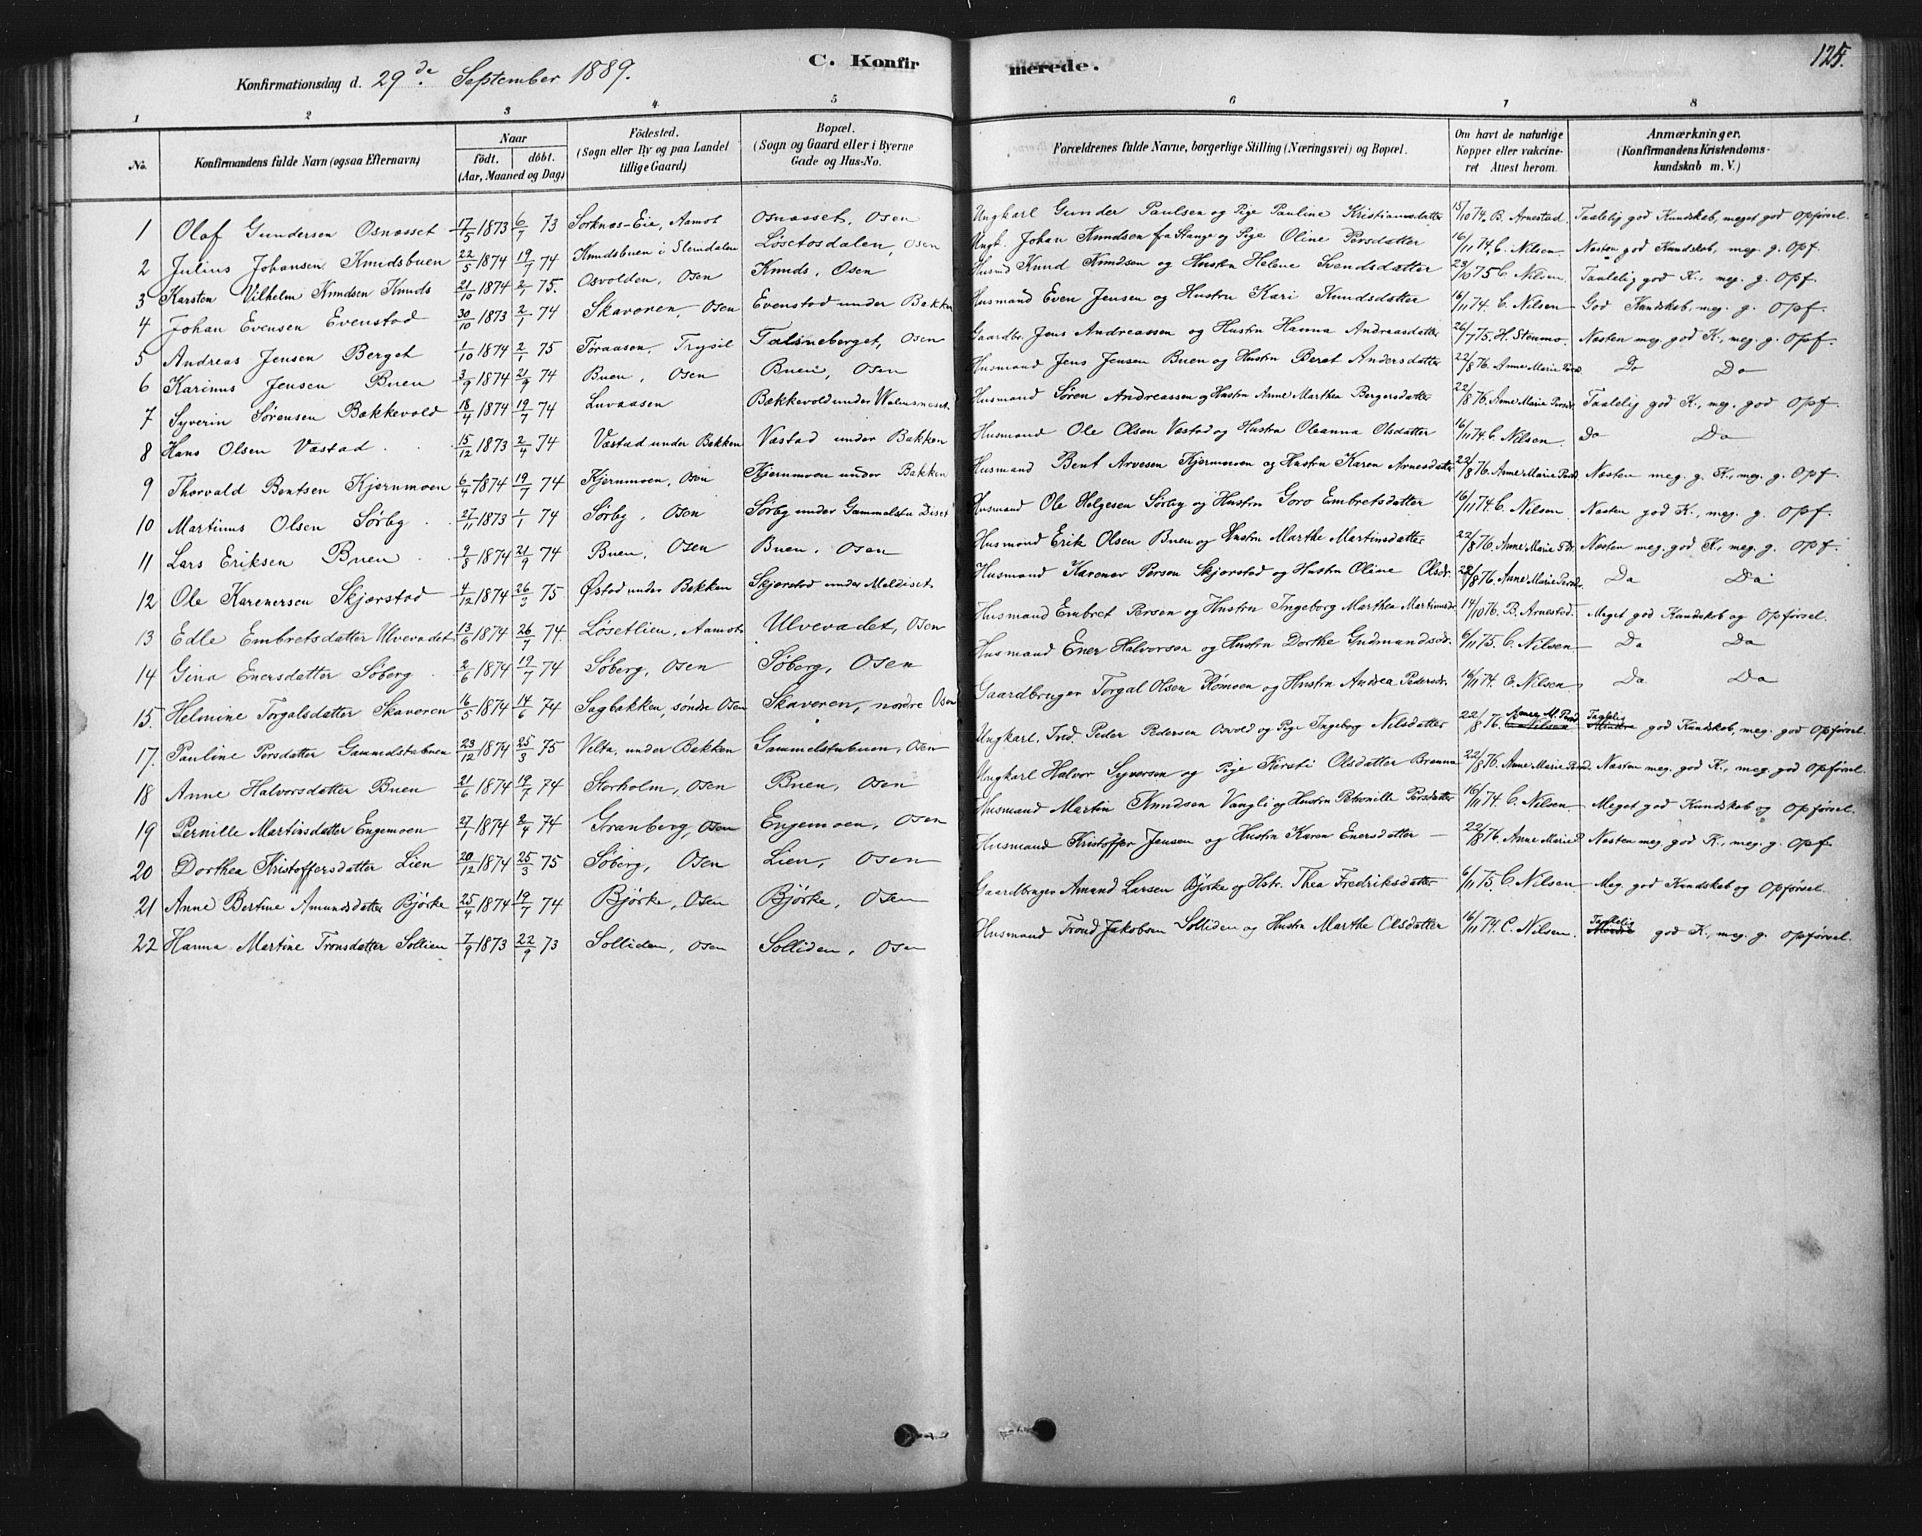 C. Konfirmerede.
125.
Konfirmationsdag d. 29de September 1889.
1 2 3 4 5 6 7 8
No. Konfirmandens fulde Navn (ogsaa Efternavn) Naar födt. döbt. (Aar, Maaned og Dag) Födested. (Sogn eller By og paa Landet tillige Gaard) Bopæl. (Sogn og Gaard eller i Byerne Gade og Hus-No. Forældrenes fulde Navne, borgerlige Stilling (Næringsvei) og Bopæl. Om havt de naturlige Kopper eller vakcineret Attest herom. Anmærkninger. (Konfirmandens Kristendomskundskab m. V.)
1 Olaf Gundersen Osnæsset 17/5 1873 6/7 73 Sorknæs-Eie, Aamot Osnæsset, Osen Ungkarl Gunder Paulsen og Pige Pauline Kristiansdatter 15/10 74, B. Arnestad. Taalelig god Kundskab, meget god Opførsel.
2 Julius Johansen Knudsbuen 22/5 1874 19/7 74 Knudsbuen i Slemdalen Løsetosdalen, Osen Ungk. Johan Knudsen fra Stange og Pige Oline Persdatter 16/11 74, C. Nilsen Næsten god Kundskab, meg. g. Opf.
3 Karsten Vilhelm Knudsen Knuds 21/10 1874 2/1 75. Osvolden, Osen Knuds, Osen Husmd Knud Knudsen og Hustru Helene Svendsdatter C. Nilsen Taalelig god K., meg. g. Opf.
4 Johan Evensen Evenstad 30/10 1873 2/1 74 Skaveren, Osen Evenstad under Bakken Husmand Even Jensen og Hustru Kari Knudsdatter 16/11 74. C. Nilsen God Kundskab, meg. g. Opf.
5 Andreas Jensen Berget 1/10 1874 2/1 75 Töraasen, Trysil Tølsneberget, Osen Gaardbr. Jens Andreassen og Hustru Hanna Andreasdatter 26/7 75, H. Stenmo. Næsten meg. god K., meg. g. Opf.
6 Karinus Jensen Buen 3/9 1874 21/9 74 Buen, Osen Buen, Osen Husmand Jens Jensen Buen og Hustru Beret Andersdatter 22/8 76. Anne Marie Do Do
7 Syverin Sørensen Bækkevold 18/4 1874 19/7 74 Luvaasen Bækkevold under Husmand Søren Andreassen og Hustru Anne Marthea Bergersdatter 22/8 76. Anne Marie Taalelig god K., meg. god Opf.
8 Hans Olsen Væstad 15/12 1873 2/4 74 Væstad under Bakken Væstad under Bakken Husmand Ole Olsen Væstad og Hustru Oleanna Olsdatter 16/11 74. C. Nilsen. Do Do
9 Thorvald Bentsen Kjernmoen 6/4 1874 19/7 74 Kjernmoen, Osen Kjernmoen under Bakken Husmand Bent Arvesen Kjernmoen og Hustru Karen Arnesdatter 22/8 76, Anne Marie Næsten meg. g. K., meg. g. Opf.
10 Martinus Olsen Sørby 27/11 1873 1/1 74 Sørby, Osen Sørby under Gammelstu Diset Husmand Ole Helgesen Sørby og Hustru Goro Embretsdatter 16/11 74. C. Nilsen. Næsten god K., meg. g. Opf.
11 Lars Eriksen Buen 2/8 1874 21/9 74 Buen, Osen Buen, Osen Husmand Erik Olsen Buen og Hustru Marthe Martinsdatter 22/8 76. Anne Marie Næsten meg. god K., meg. g. Opf.
12 Ole Karenersen Skjærstad 4/12 1874 26/3 75 Østad under Bakken Skjærstad under Meldiset Husmand Karener Persen Skjærstad og Hustru Oline Olsdr. 22/8 76, Anne Marie Do Do
13 Edle Embretsdatter Ulvevadet 13/6 1874 26/7 74 Løsetlien, Aamot Ulvevadet, Osen Husmand Embret Persen og Hustru Ingeborg Marthea 14/10 76. B. Arnestad. Meget god Kundskab og Opførsel.
14 Gina Enersdatter Søberg 2/6 1874 19/7 74 Søberg, Osen Søberg, Osen Husmand Ener Halvorsen og Hustru Dorthe Gudmundsdr. 6/11 75. C. Nilsen Do Do
15 Helmine Torgalsdatter Skaveren 16/5 1874 14/6 74 Sagbakken, søndre Osen Skaveren, nordre Osen Gaardbruger Torgal Olsen Rømoen og Hustru Andrea Pedersdr. 16/11 74. C. Nilsen Do Do
17. Pauline Persdatter Gammelstubuen 23/12 1874 25/3 75 Velta, under Bakken Gammelstubuen, Osen Ungkarl, Ind. Peder Pedersen Osvold og Pige Ingeborg Nilsdatter 22/8 76. Anne M. C. Nilsen Taalelig god Kundskab, meg. god Opførsel
18 Anne Halvorsdatter Buen 21/6 1874 19/7 74 Storholm, Osen Buen, Osen Ungkarl Halvor Syversen og Pige Kersti Olsdatter Brenna 22/8 76. Anne Marie Næsten meg. god K., meg. god Opførsel.
19 Pernille Martinsdatter Engemoen 27/1 1874 2/4 74 Granberg, Osen Engemoen, Osen Husmand Martin Knudsen Vangli og Hustru Petronille Persdatter 16/11 74. C. Nilsen Meget god Kundskab og Opførsel.
20 Dorthea Kristoffersdatter Lien 20/12 1874 25/3 75 Søberg, Osen Lien, Osen Husmand Kristoffer Jensen og Hustru Karen Enersdatter 22/8 76. Anne Marie Næsten meg. god K., meg. g. Opf.
21 Anne Bertine Amundsdatter Bjørke 25/4 1874 19/7 74 Bjørke, Osen Bjørke, Osen Gaardbruger Amund Larsen Bjørke og Hstr. Thea Fredriksdatter 6/11 75. C. Nilsen Meg. god Kundskab og Opførsel.
22 Hanna Martine Tronsdatter Sollien 7/9 1873 22/9 73 Solliden, Osen Solliden, Osen Husmand Trond Jakobsen Solliden og Hustru Marthe Olsdatter 16/11 74. C. Nilsen. Taalelig god K., meg. g. Opførsel.